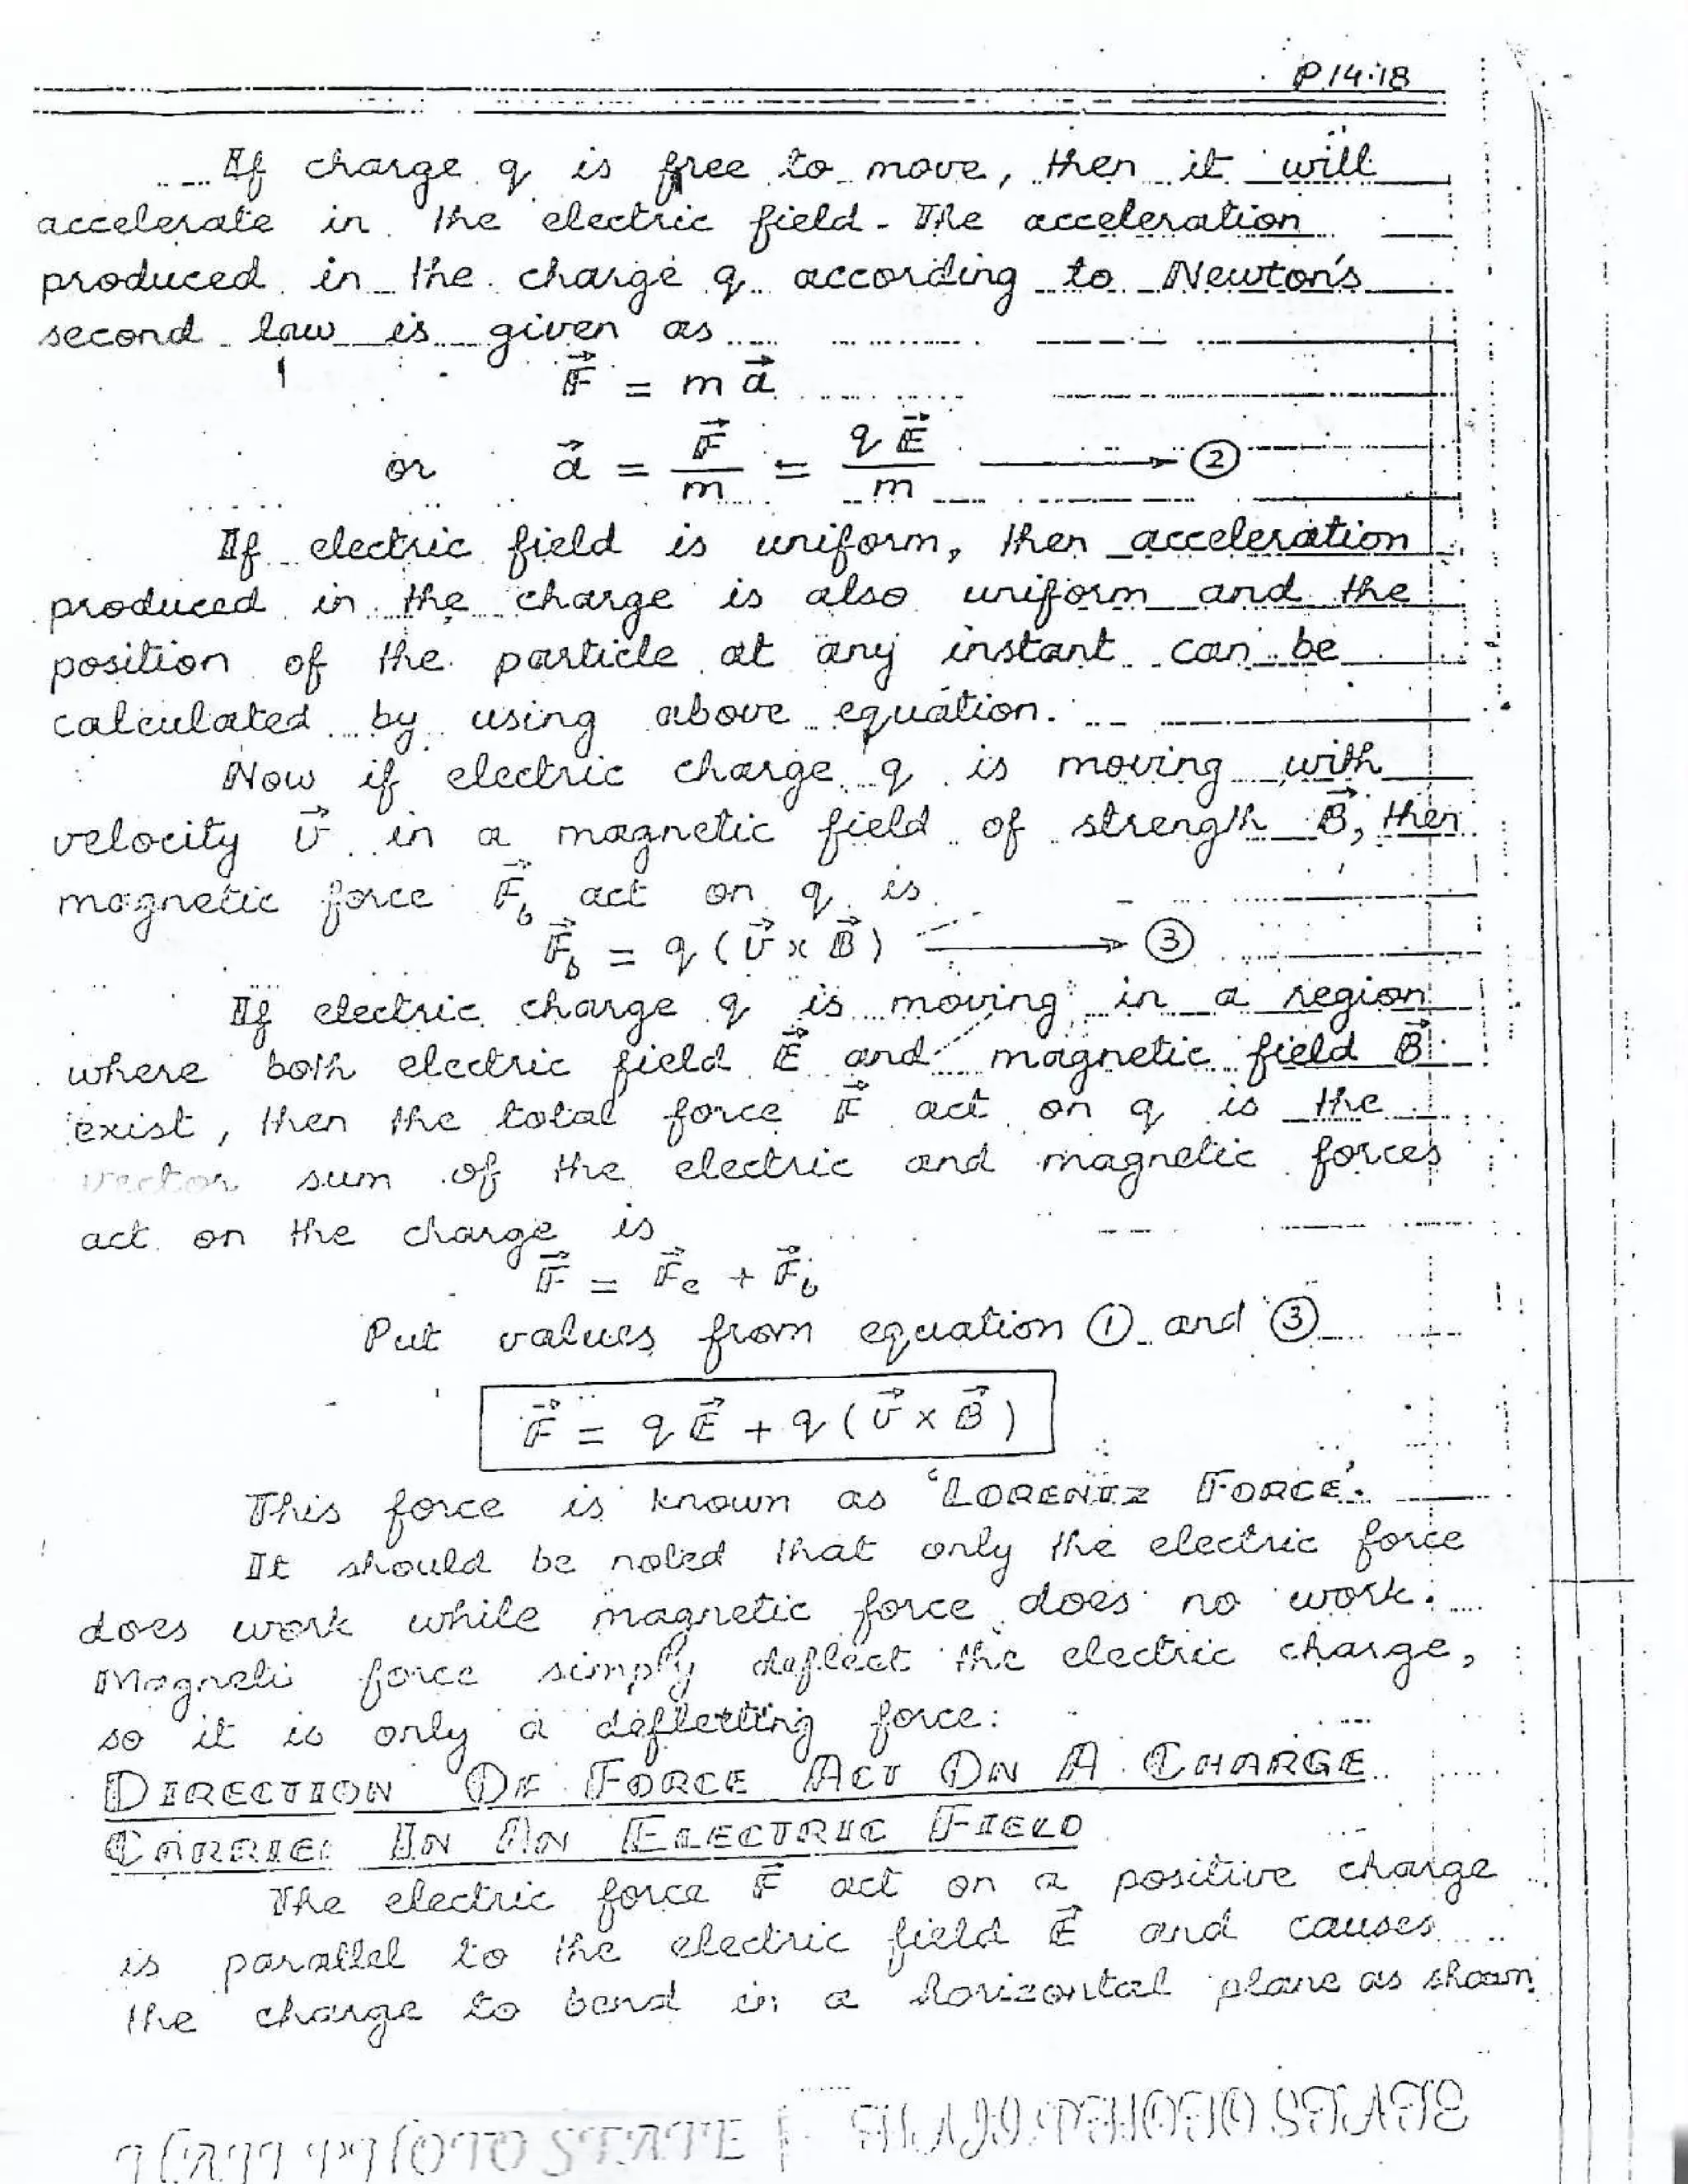 P 14.18
If charge q is free to move, then it will
accelerate in the electric field. The acceleration
produced in the charge q according to Newton's
second law is given as
F⃗ = m a⃗
or a⃗ = F⃗/m = q E⃗/m → ②
If electric field is uniform, then acceleration
produced in the charge is also uniform and the
position of the particle at any instant can be
calculated by using above equation.
Now if electric charge q is moving with
velocity v⃗ in a magnetic field of strength B⃗, then
magnetic force F⃗b act on q is
F⃗b = q (v⃗ x B⃗) → ③
If electric charge q is moving in a region
where both electric field E⃗ and magnetic field B⃗
exist, then the total force F⃗ act on q is the
vector sum of the electric and magnetic forces
act on the charge is
F⃗ = F⃗e + F⃗b
Put values from equation ① and ③
F⃗ = q E⃗ + q (v⃗ x B⃗)
This force is known as 'LORENTZ FORCE'.
It should be noted that only the electric force
does work while magnetic force does no work.
Magneti force simply deflect the electric charge,
so it is only a deflecting force.
DIRECTION OF FORCE ACT ON A CHARGE
CARRIE IN AN ELECTRIC FIELD
The electric force F⃗ act on a positive charge
is parallel to the electric field E⃗ and causes
the charge to bend in a horizontal plane as shown
PHOTO STATE PHOTO STATE